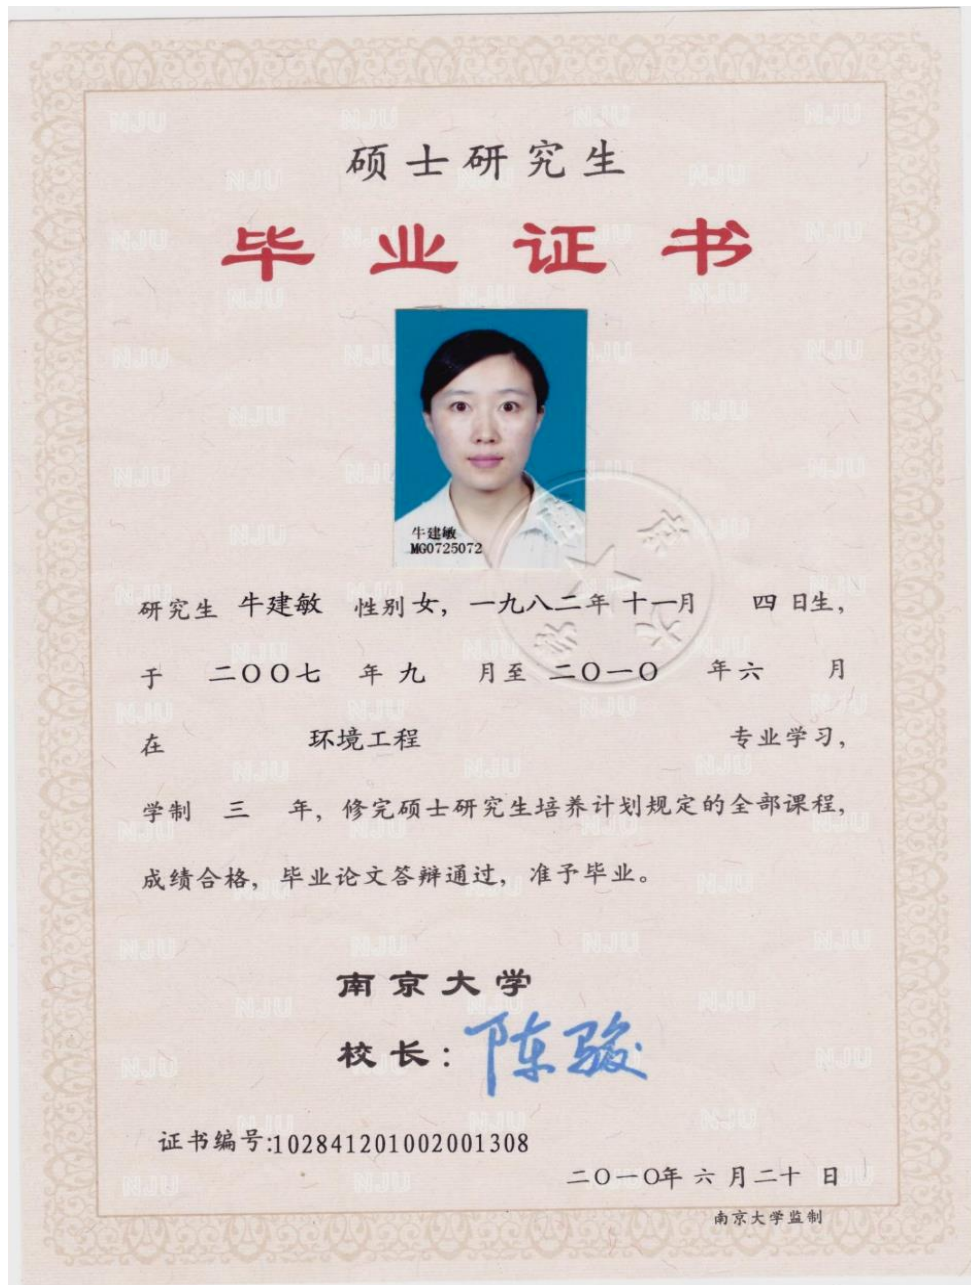 硕士研究生
毕业证书
牛建敏
MG0725072
研究生 牛建敏 性别 女, 一九八二年 十一月 四 日生,
于 二〇〇七 年 九 月至 二〇一〇 年 六 月
在 环境工程 专业学习,
学制 三 年, 修完硕士研究生培养计划规定的全部课程,
成绩合格, 毕业论文答辩通过, 准予毕业。
南京大学
校长: 陈骏
证书编号:102841201002001308
二〇一〇年 六 月二十 日
南京大学监制